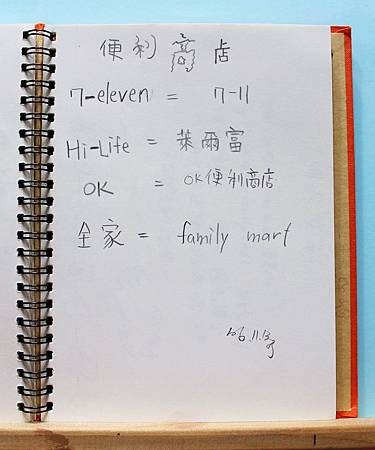 便利商店
7-eleven = 7-11
Hi-Life = 萊爾富
OK = OK便利商店
全家 = family mart
106.11.13